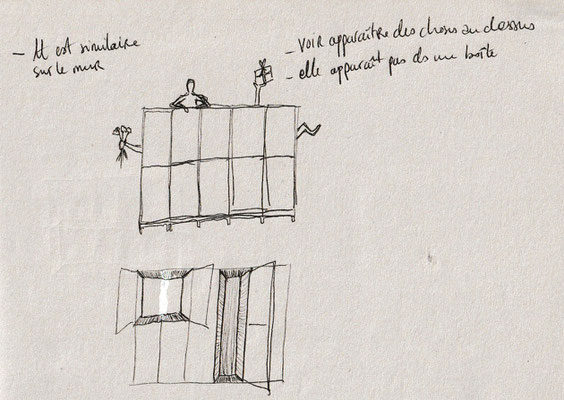 - et est similaire
sur le mur
- VOIR apparaître des choses au dessus
- elle apparaît pas ds une boîte